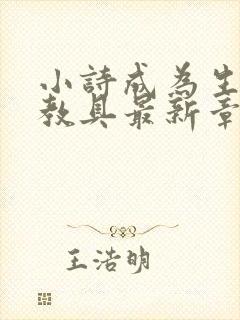 小詩成為生
教具最新章
王浩明